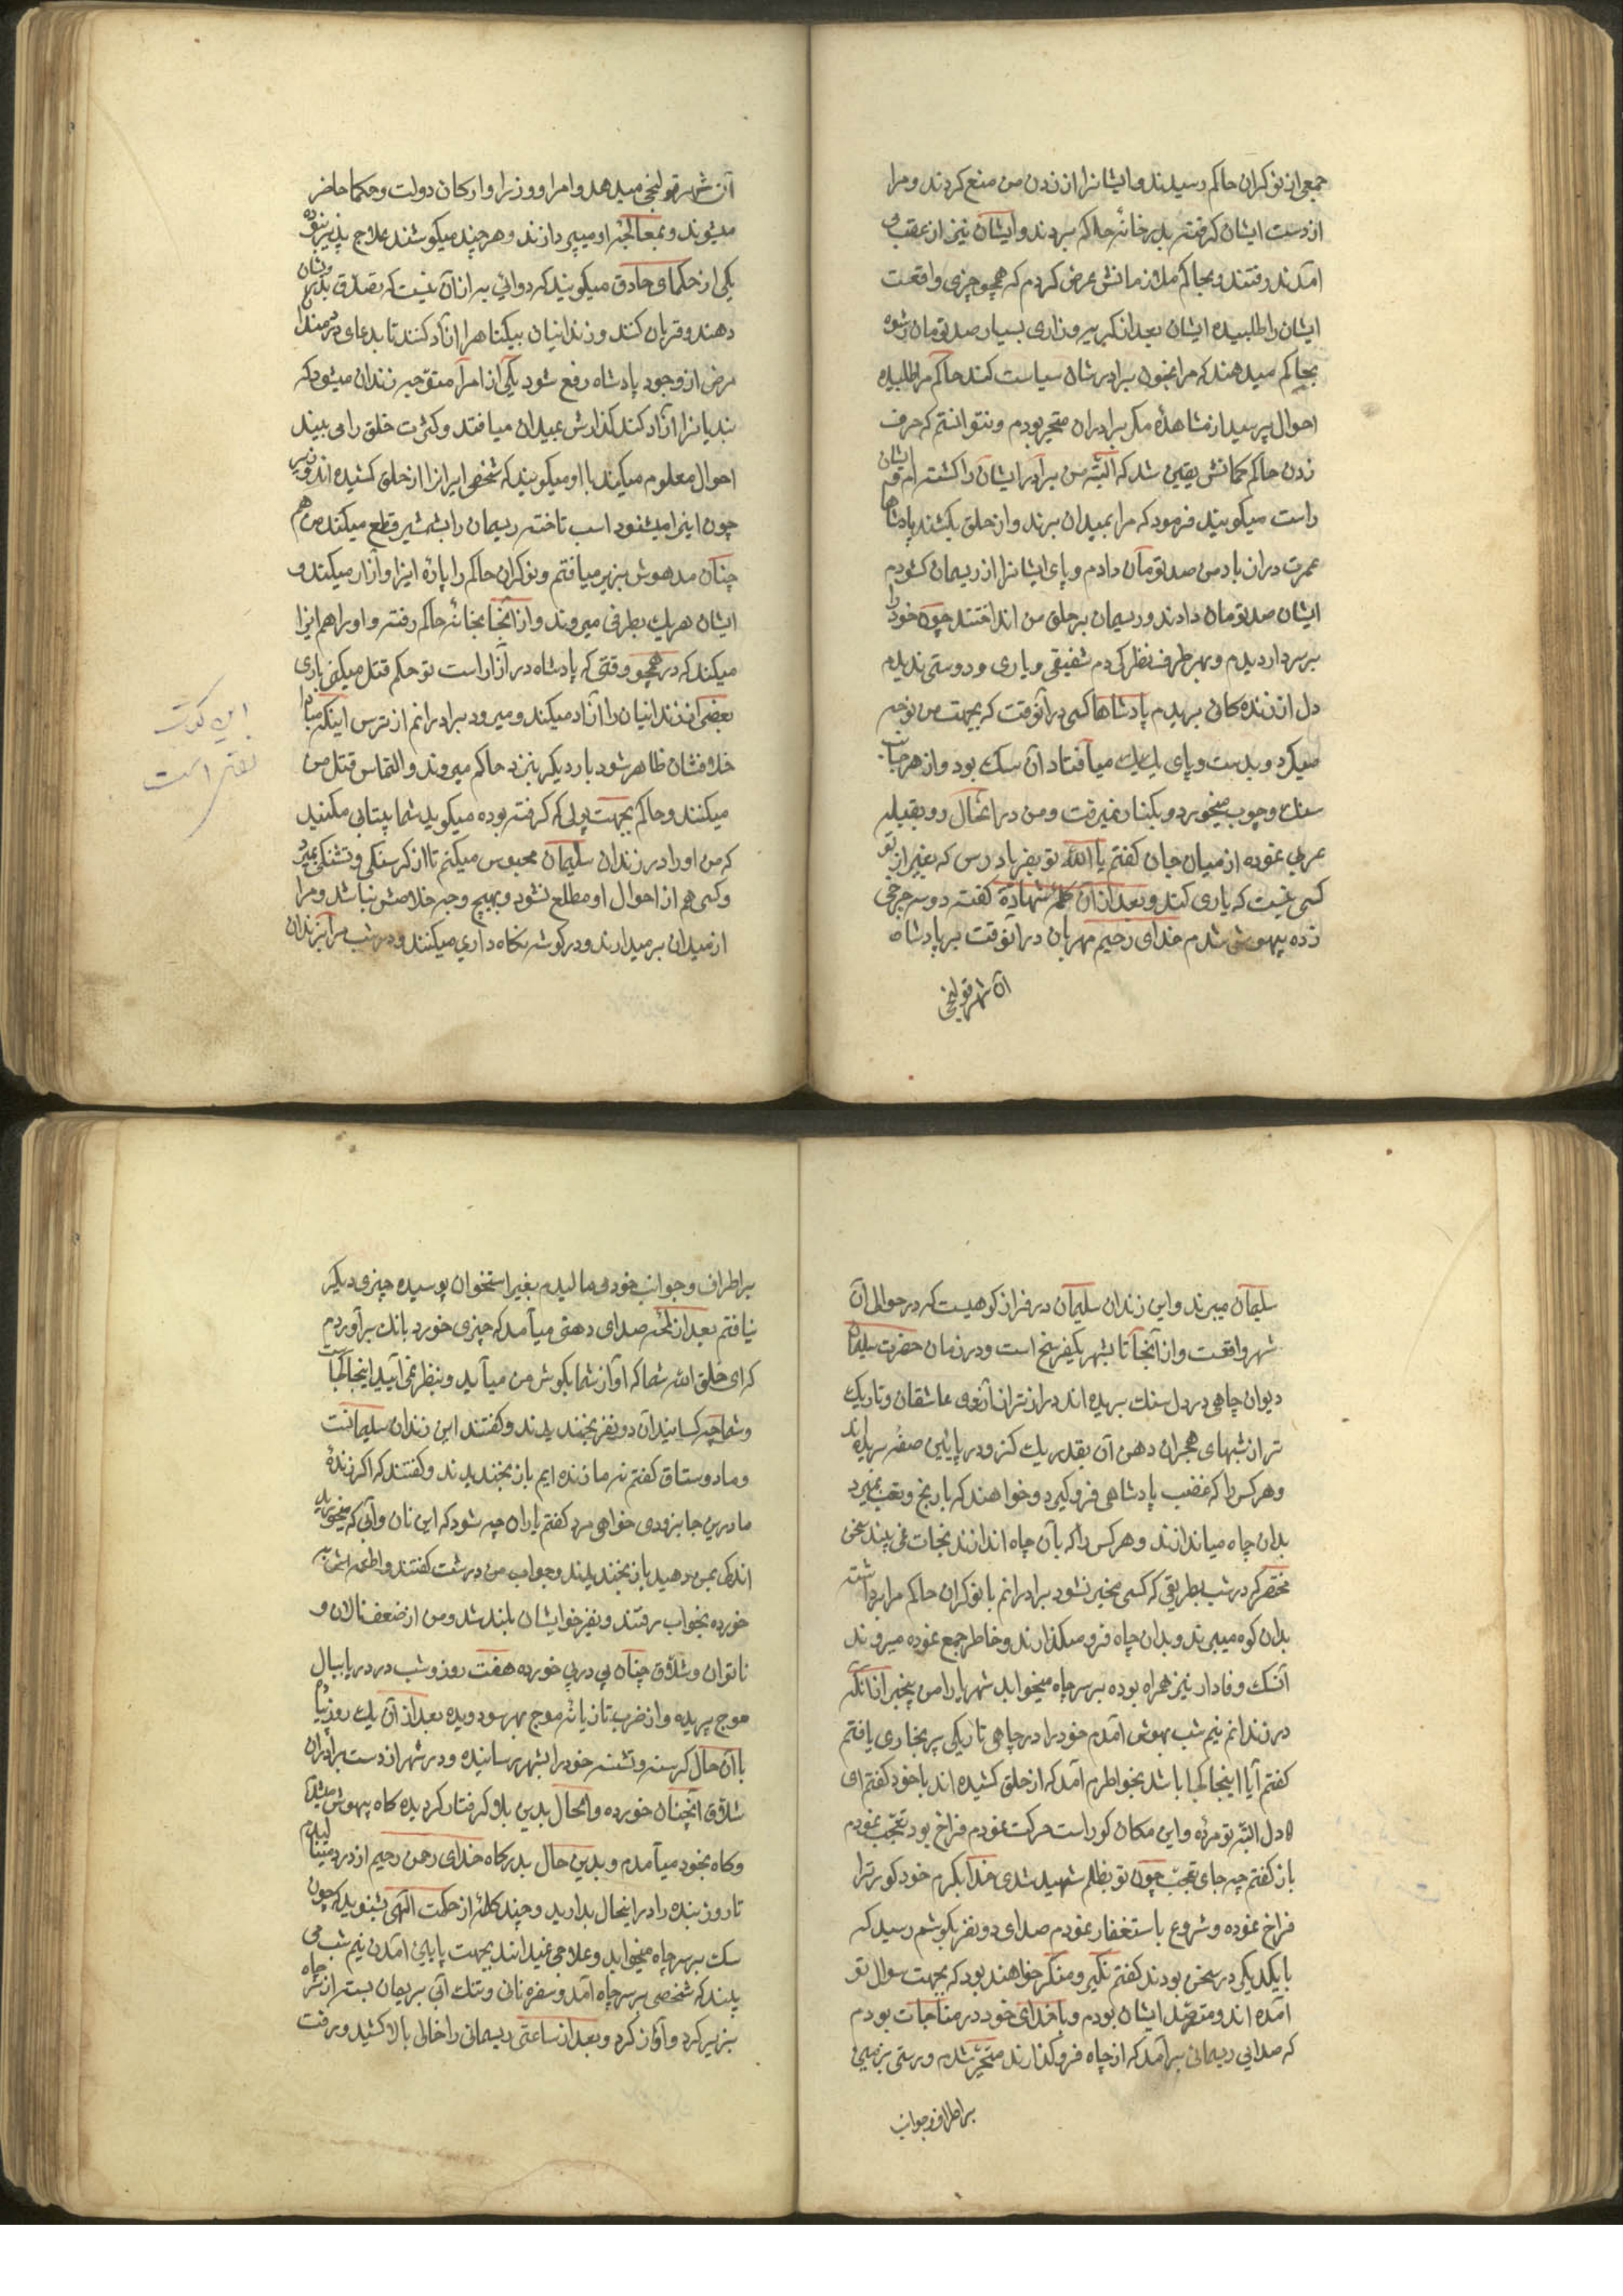 جمعی از نوکران حاکم رسیدند و ایشانرا از زدن من منع کردند و مرا
از دست ایشان کرفته بدرخانه حاکم بردند و ایشان نیز از عقب من
آمدند رفتند و بحاکم ملازمانش عرض کردم که همچو چیزی واقعست
ایشان را طلبیده ایشان بعد از کریه و زاری بسیار صد تومان رشوه
بحاکم میدهند که مرا بخون برادرشان سیاست کند حاکم مرا طلبیده
احوال پرسید از مشاهده مکر برادران متحیر بودم و نتوانستم که حرف
زدن حاکم کمانش یقین شد که البته من برادر ایشان را کشته ام و ایشان
راست میکویند فرمود که مرا بمیدان برند و از حلق بکشند پادشاها
عمرت دراز باد من صد تومان دادم و پای ایشانرا از ریسمان کشودم
ایشان صد تومان دادند و ریسمان بر حلق من انداختند چون خود را
بر سر دار دیدم و بهر طرف نظر کردم شفیقی و یاری و دوستی ندیدم
دل از زنده کانی بریدم پادشاها کسی در آنوقت که بجهت من نوحه
میکرد و بدست و پای یک یک میافتاد آن سک بود و از هر جانب
سنک و چوب میخورد و بکنار نمیرفت و من در انحال رو بقبله
عربی نموده از میان جان کفتم یا الله تو بفریاد رس که بغیر از تو
کسی نیست که یاری کند و بعد از آن کلمه شهادة کفته دو سه چرخی
زده بیهوش شدم خدای رحیم مهربان در آنوقت بر پادشاه
آن شهر قولنجی
آن شهر قولنجی میدهد و امرا و وزرا و ارکان دولت و حکما حاضر
میشوند و بمعالجه او میپردازند و هر چند میکوشند علاج پذیر نبوده
یکی از حکمای حاذق میکویند که دوائی به از آن نیست که تصدق بدرویشان
دهند و قربان کنند و زندانیان بیکناه را آزاد کنند تا بدعای دردمندان
مرض از وجود پادشاه رفع شود یکی از امرا متوجه زندان میشود که
بندیانرا آزاد کند کذارش بمیدان میافتد و کثرت خلق را می بیند
احوال معلوم میکند با او میکویند که شخصی را از حلق کشیده اند
چون اینرا میشنود اسب تاخته ریسمان را بشمشیر قطع میکند من هم
چنان مدهوش بزیر میافتم و نوکران حاکم را پارهٔ ایزا و آزار میکنند و
ایشان هر یک بطرفی میروند و از آنجا بخانه حاکم رفته و او را هم ایزا
میکند که در همچو وقتی که پادشاه در آزار است تو حکم قتل میکنی باری
بعضی از زندانیان را آزاد میکند و میرود برادرانم از ترس اینکه مبادا
خلافشان ظاهر شود بار دیکر بنزد حاکم میروند و التماس قتل من
میکنند و حاکم بجهت پولی که کرفته بوده میکوید شما بیتابی مکنید
که من او را در زندان سلیمان محبوس میکنم تا از کرسنکی و تشنکی بمیرد
و کسی هم از احوال او مطلع نشود و بهیچ وجه خلاصش نباشد و مرا
از میدان بر میدارند و در کوشه نکاه داری میکنند و در شب مرا بزندان
سلیمان میبرند و این زندان سلیمان در فراز کوهیست که در حوالی آن
شهر واقعست و از آنجا تا بشهر یکفرسخ است و در زمان حضرت سلیمان
دیوان چاهی در دل سنک بریده اند درازتر از آرزوی عاشقان و تاریک
تر از شبهای هجران دهن آن بقدر یک کز و در پایین صفه بریده اند
و هر کس را که غضب پادشاهی فرو کیرد و خواهند که با رنج و تعب بمیرد
بدان چاه میاندازند و هر کس را که بآن چاه اندازند نجات نمی بیند سخن
مختصر که در شب بطریقی که کسی مخبر نشود برادرانم با نوکران حاکم مرا برداشته
بدان کوه میبرند و بدان چاه فرو میکذارند و خاطر جمع نموده میروند
آنسک وفادار نیز همراه بوده بر سر چاه میخوابد شهریارا من بیخبر از آنکه
در زندانم نیم شب بهوش آمدم خود را در چاهی تاریکی پر بخاری یافتم
کفتم آیا اینجا کجا باشد بخواطرم آمد که از حلق کشیده اند با خود کفتم ای
دل البته تو مرده و این مکان کور است حرکت نمودم فراخ بود تعجب نمودم
باز کفتم چه جای تعجب چون تو بظلم شهید شدی خدا بکرم خود کور ترا
فراخ نموده و شروع باستغفار نمودم صدای دو نفر بکوشم رسید که
با یکدیکر در سخن بودند کفتم نکیر و منکر خواهند بود که بجهت سوال تو
آمده اند و مترصد ایشان بودم و با خدای خود در مناجات بودم
که صدایی ریسمانی برآمد که از چاه فرو کذارند متحیر شدم و دستی بزمین
بر اطراف و جوانب
بر اطراف و جوانب خود می مالیدم بغیر استخوان پوسیده چیزی دیکر
نیافتم بعد از لحظه صدای دهنی میآمد که چیزی خورد بانک برآوردم
که ای خلق الله شما که آواز شما بکوش من میآید و بنظر نمی آیید اینجا کجاست
و شما چه کسانید آن دو نفر بخندیدند و کفتند این زندان سلیمانست
و ما دوستاق کفتم نه ما زنده ایم باز بخندیدند و کفتند که اکر زندهٔ
ما درین جا بزودی خواهی مرد کفتم یاران چه شود که این نان و آبی که میخورید
اندکی بمن دهید باز بخندیدند و جواب من درشت کفتند و اطعمه اشربه
خورده بخواب رفتند و نفیر خواب ایشان بلند شد و من از ضعف نالان و
ناتوان و شلاق چنان پی در پی خورده هفت روز و شب در دریا ببال
موج پریده و از ضرب تازیانه موج بهر سو دویده بعد از آن یک روز پیاده
باآن حال کرسنه و تشنه خود را بشهر رسانیده و در شهر از دست برادران
شلاق آنچنان خورده و الحال بدین بلا کرفتار کردیده کاه بیهوش میشدم
و کاه بخود میآمدم و بدین حال بدرکاه خدای رحمن رحیم از درد مینالیدم
تا روز بنده را در اینحال بدارید و چند کلمه از حکمت الهی بشنوید که چون
سک بر سر چاه میخوابد و علاجی نمیداند بجهت پایین آمدن نیم شب می
بیند که شخصی بر سر چاه آمد و سفره نانی و تنک آبی بریسمان بسته از سر چاه
بزیر کرد و آواز کرد و بعد از ساعتی ریسمان را خالی بالا کشید و برفت